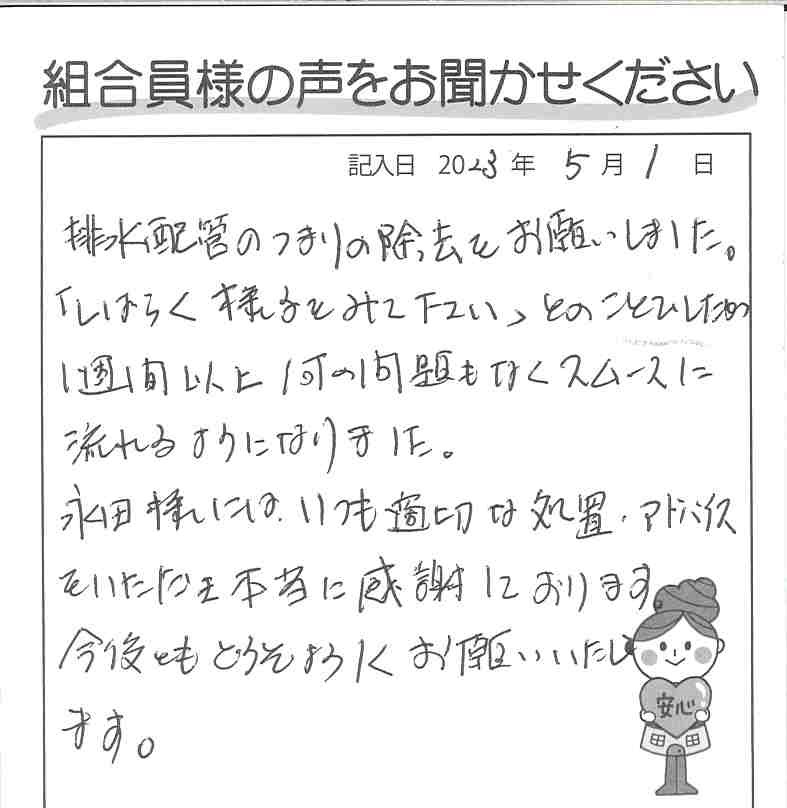 組合員様の声をお聞かせください
記入日 2023年 5月 1日
排水配管のつまりの除去をお願いしました。
「しばらく様子をみて下さい」とのことでしたが
1週間以上何の問題もなくスムースに
流れるようになりました。
永田様には、いつも適切な処置・アドバイス
をいただき本当に感謝しております
今後ともどうぞよろしくお願いいたし
ます。
安心